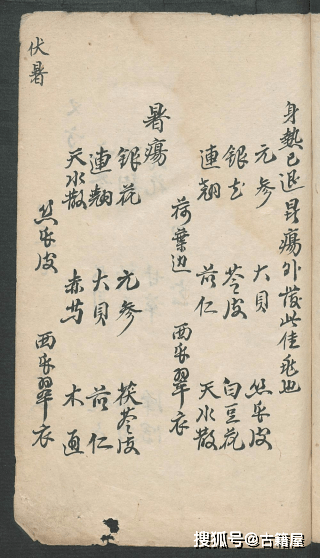 身熱已退暑瘍外發此佳兆也
元参 大貝 絲瓜皮
銀花 苓皮 白豆花
連翹 苡仁 天水散
荷葉边 西瓜翠衣
暑瘍
銀花 元参 茯苓皮
連翹 大貝 苡仁
天水散 赤芍 木通
絲瓜皮 西瓜翠衣
伏暑
搜狐号@古籍屋